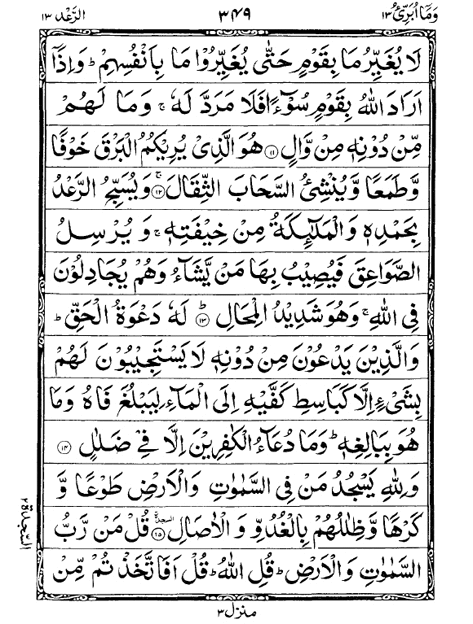 وَمَآ اُبَرِّئُ ١٣ ٣٤٩ الرَّعْد ١٣
لَا يُغَيِّرُ مَا بِقَوْمٍ حَتّٰى يُغَيِّرُوْا مَا بِاَنْفُسِهِمْ ؕ وَاِذَآ
اَرَادَ اللّٰهُ بِقَوْمٍ سُوْٓءًا فَلَا مَرَدَّ لَهٗ ۚ وَمَا لَهُمْ
مِّنْ دُوْنِهٖ مِنْ وَّالٍ ۝۱۱ هُوَ الَّذِىْ يُرِيْكُمُ الْبَرْقَ خَوْفًا
وَّطَمَعًا وَّيُنْشِئُ السَّحَابَ الثِّقَالَ ۝۱۲ۚ وَيُسَبِّحُ الرَّعْدُ
بِحَمْدِهٖ وَالْمَلٰٓئِكَةُ مِنْ خِيْفَتِهٖ ۚ وَيُرْسِلُ
الصَّوَاعِقَ فَيُصِيْبُ بِهَا مَنْ يَّشَآءُ وَهُمْ يُجَادِلُوْنَ
فِى اللّٰهِ ۚ وَهُوَ شَدِيْدُ الْمِحَالِ ۝۱۳ؕ لَهٗ دَعْوَةُ الْحَقِّ ؕ
وَالَّذِيْنَ يَدْعُوْنَ مِنْ دُوْنِهٖ لَا يَسْتَجِيْبُوْنَ لَهُمْ
بِشَىْءٍ اِلَّا كَبَاسِطِ كَفَّيْهِ اِلَى الْمَآءِ لِيَبْلُغَ فَاهُ وَمَا
هُوَ بِبَالِغِهٖ ؕ وَمَا دُعَآءُ الْكٰفِرِيْنَ اِلَّا فِىْ ضَلٰلٍ ۝۱۴
وَلِلّٰهِ يَسْجُدُ مَنْ فِى السَّمٰوٰتِ وَالْاَرْضِ طَوْعًا وَّ
كَرْهًا وَّظِلٰلُهُمْ بِالْغُدُوِّ وَالْاٰصَالِ ۝۱۵ السجدة قُلْ مَنْ رَّبُّ
السَّمٰوٰتِ وَالْاَرْضِ ؕ قُلِ اللّٰهُ ؕ قُلْ اَفَاتَّخَذْتُمْ مِّنْ
السَّجدة ٢
منزل ٣